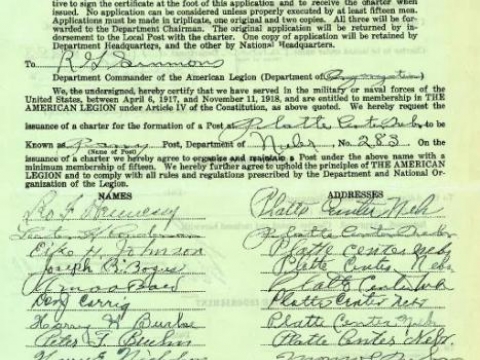 tive to sign the certificate at the foot of this application and to receive the charter when
issued. No application can be considered unless properly executed by at least fifteen men.
Applications must be made in triplicate, one original and two copies. All three will be for-
warded to the Department Chairman. The original application will be returned by in-
dorsement to the Local Post with the charter. One copy of application will be retained by
Department Headquarters, and the other by National Headquarters.
To R G Simmons
Department Commander of the American Legion (Department of
We, the undersigned, hereby certify that we have served in the military or naval forces of the
United States, between April 6, 1917, and November 11, 1918, and are entitled to membership in THE
AMERICAN LEGION under Article IV of the Constitution, as above quoted. We hereby request the
issuance of a charter for the formation of a Post at Platte Center Nebr to be
Known as Post, Department of Nebr No. 283 On the
(Name of Post)
issuance of a charter we hereby agree to organize and maintain a Post under the above name with a
minimum membership of fifteen. We hereby further agree to uphold the principles of THE AMERICAN
LEGION and to comply with all rules and regulations prescribed by the Department and National Or-
ganization of the Legion.
NAMES ADDRESSES
Leo F Platte Center Nebr
Platte Center Nebr
Johnson Platte Center Nebr
Joseph B. Bogus Platte Center Nebr
Platte Center Nebr
Don Carrig Platte Center Nebr
Harry H Platte Center Nebr
Peter F Platte Center Nebr